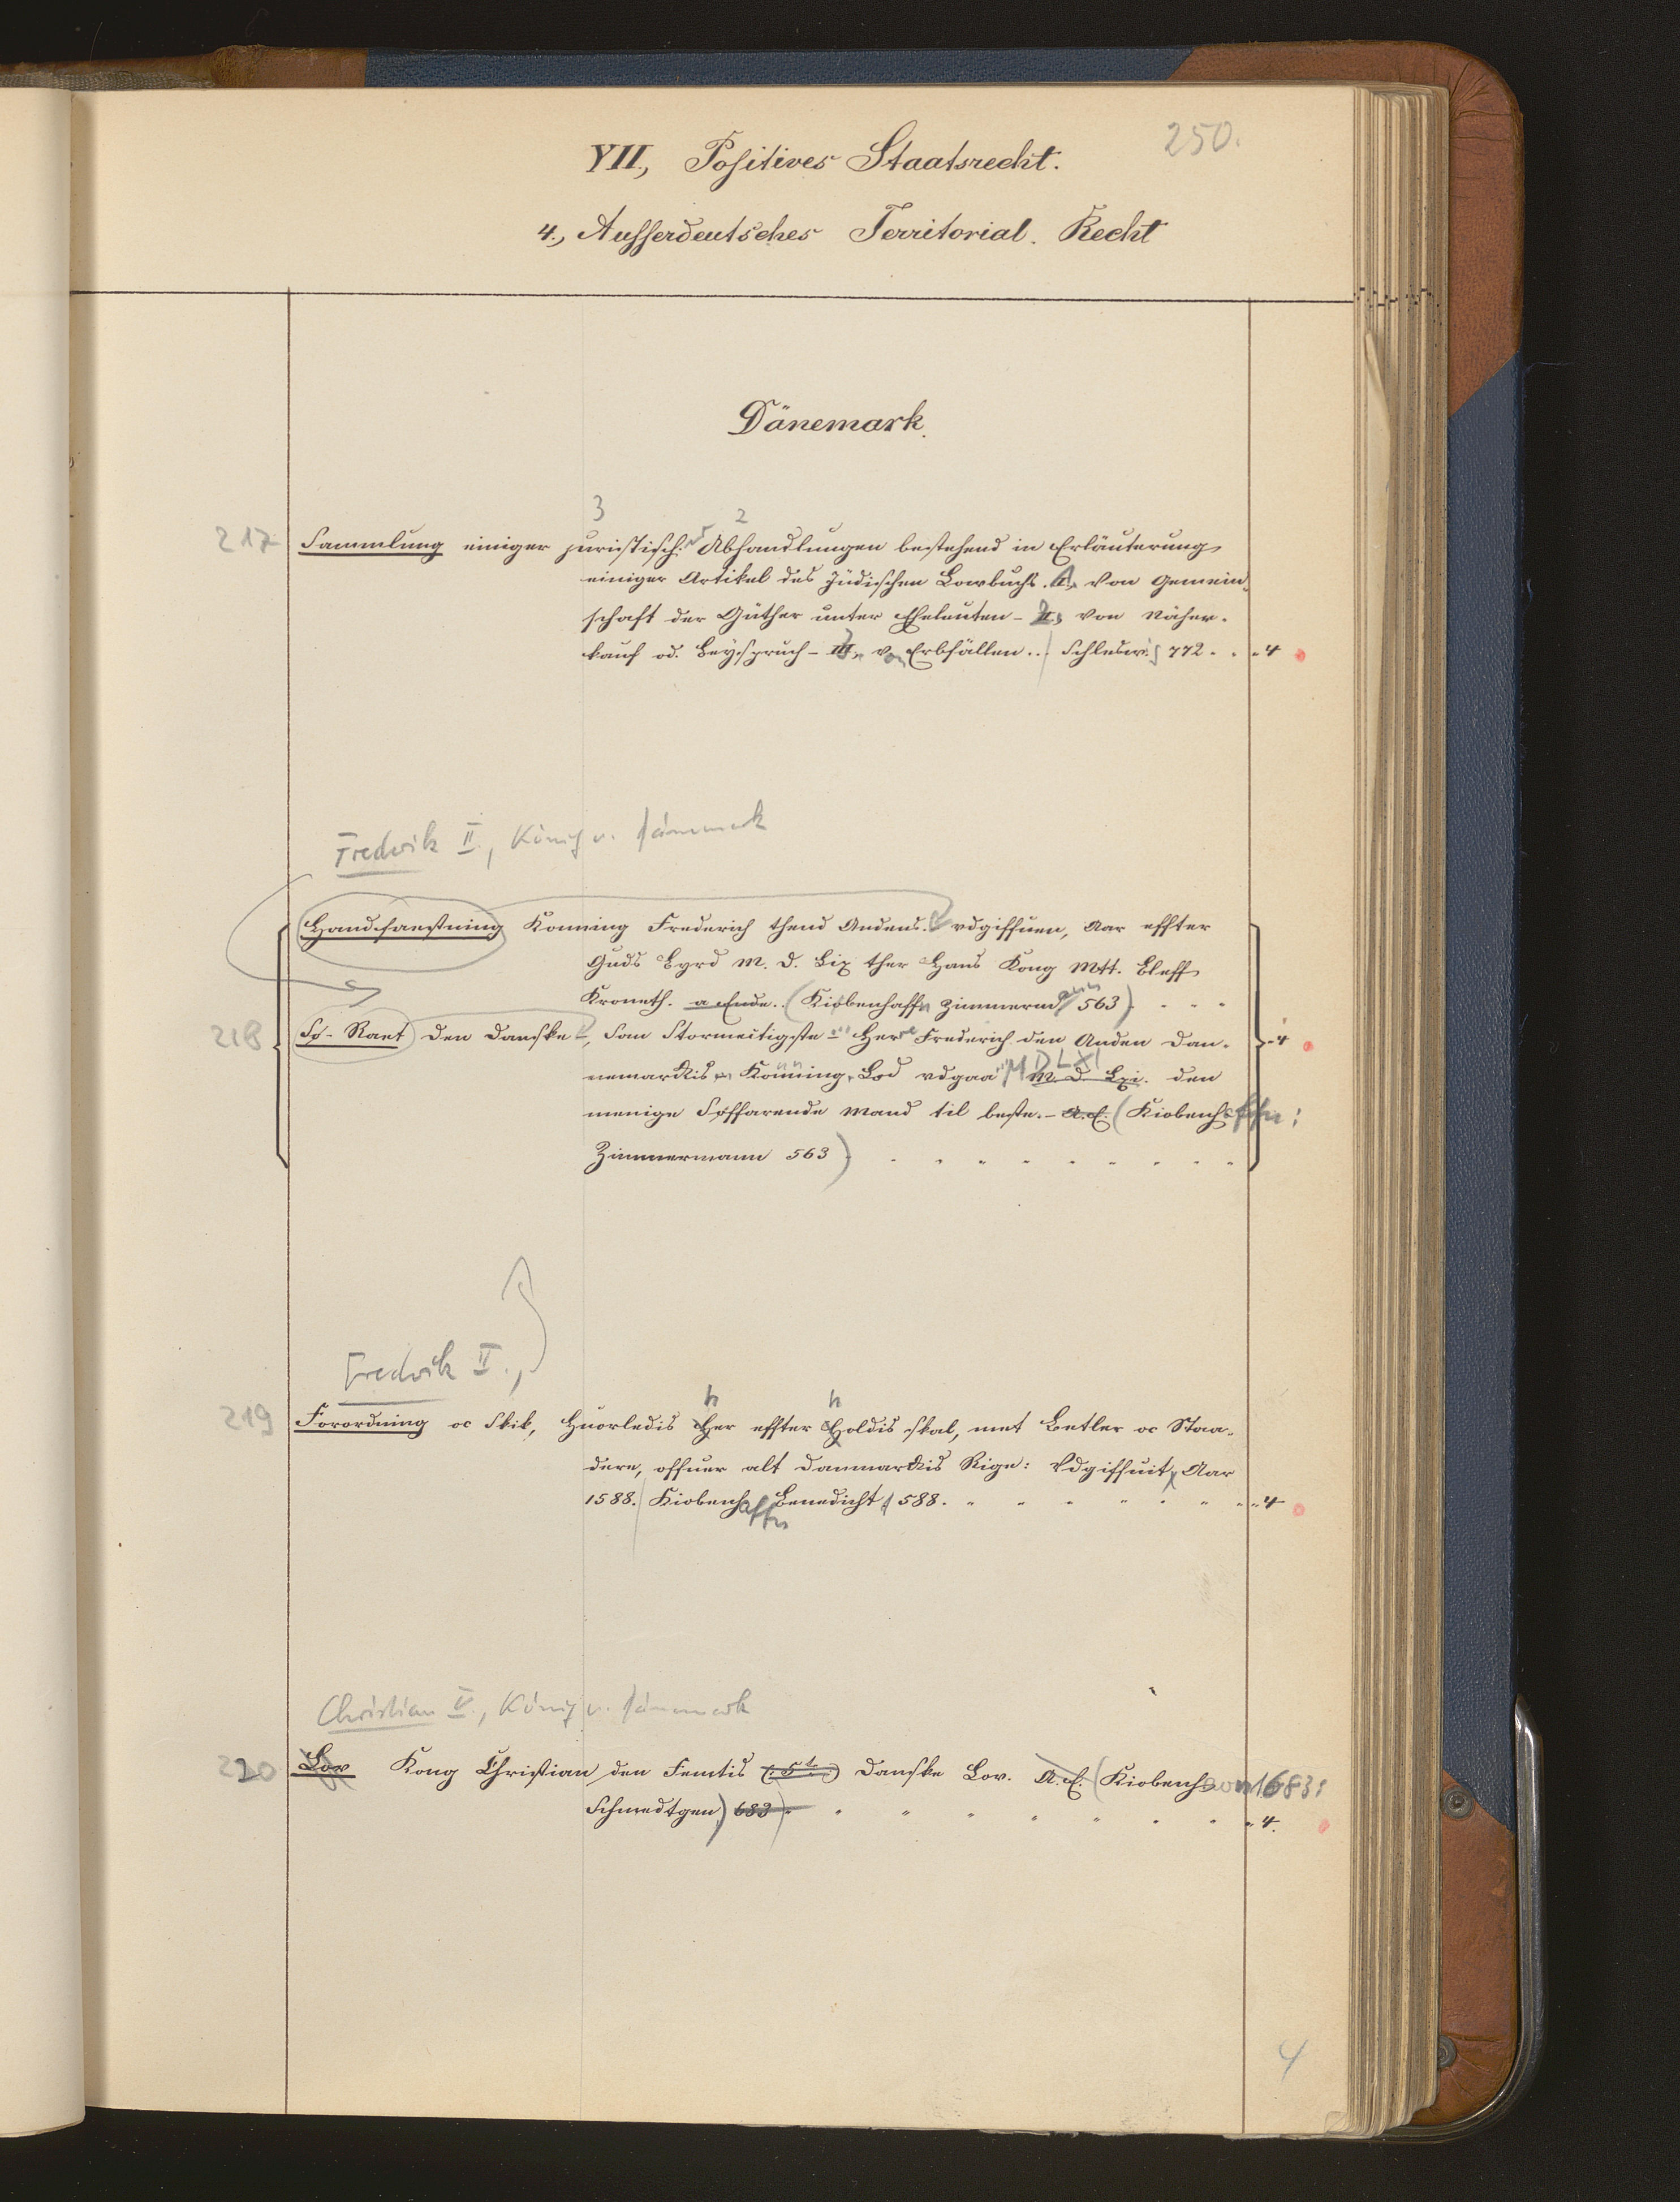 250.
VII., Positives Staatsrecht.
4., Ausserdeutsches Territorial. Recht
Dänemark.
3 2
217 Sammlung einiger juristisch. Abhandlungen bestehend in Erläuterung
einiger Artikel des Jüdischen Lowbuchs. I., von Gemein-
schaft der Güther unter Eheleuten - II., von Näher-
kauf od. Beyspruch - III., von Erbfällen.. Schlesw. 772. 4
Fredrik II., König v. Dänemark
Handfaestning Konning Frederich thend Andens. vdgiffuen, Aar effter
Guds Byrd M. D. Lix ther Hans Kong Mtt. Bleff
Kroneth. a Ende.. (Kiøbenhaffn Zimmermann 563)
218 Sø-Raet den Danske, som Stormeitigste Herre Frederich den Anden Dan-
nemarckis Konning, Lod vdgaa M. D. Lxi. MDLXI den
menige Søffarende Mand til beste. - A. E. (Kiobenhaffn: 4
Zimmermann 563)
Fredrik II.,
219 Forordning oc Skik, Huorledis Her effter Holdis skal, met Betler oc Staa-
h h
dere, offuer alt Danmarckis Rige: Vdgiffuit, Aar
1588. Kiobenhaffn Benedicht 588. 4
Christian V., König v. Dänemark
220 Lov Kong Christian den Femtis (: 5te :) Danske Lov. A. E. (Kiobenhavn 1683:
Schmedtgen) 683 4.
4